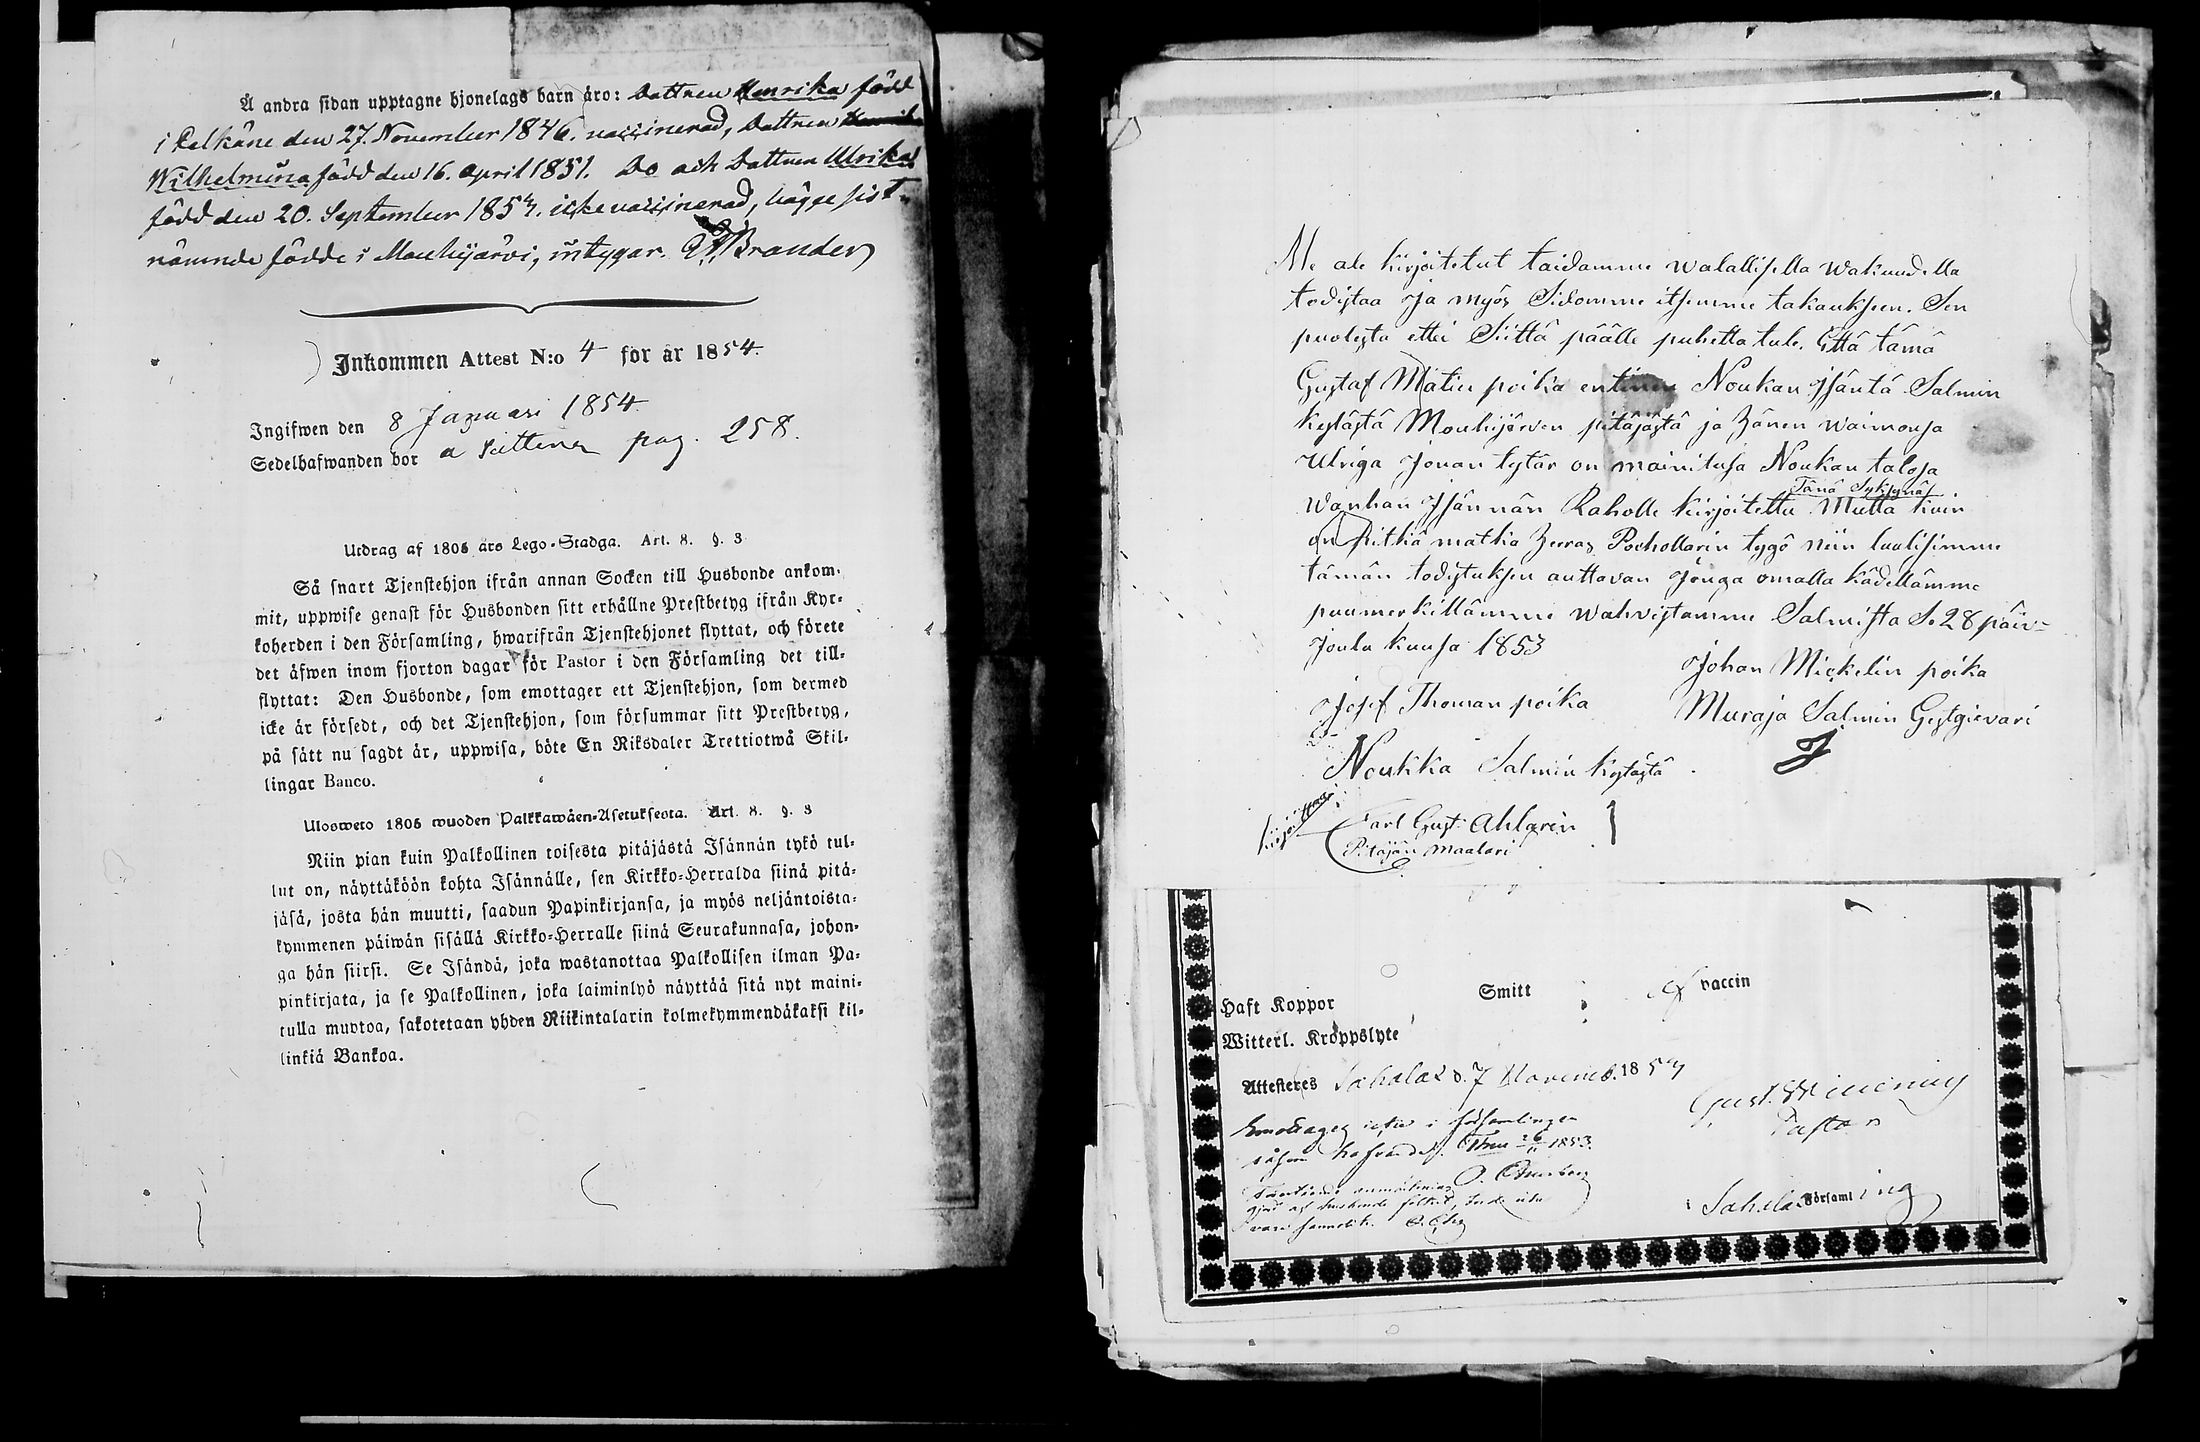 Å andra sidan upptagne hjonelags barn äro: Dottren Henrika född
i Pelkäne den 27. November 1846. vaccinerad, Dottren
Wilhelmina född den 16. April 1851. Do och Dottren Ulrika
född den 20. September 1853. icke vaccinerad, bägge sist-
nämnde födde i Mouhijärvi, intygar. Brander
Inkommen Attest N:o 4 för år 1854.
Ingifwen den 8 Januari 1854.
Sedelhafwanden bor å pag. 258.
Utdrag af 1805 års Lego-Stadga. Art. 8. §. 3
Så snart Tjenstehjon ifrån annan Socken till Husbonde ankom-
mit, uppwise genast för Husbonden sitt erhållne Prestbetyg ifrån Kyr-
koherden i den Församling, hwarifrån Tjenstehjonet flyttat, och förete
det äfwen inom fjorton dagar för Pastor i den Församling det till-
flyttat: Den Husbonde, som emottager ett Tjenstehjon, som dermed
icke är försedt, och det Tjenstehjon, som försummar sitt Prestbetyg,
på sätt nu sagdt är, uppwisa, böte En Riksdaler Trettiotwå Skil-
lingar Banco.
Ulosweto 1805 wuoden Palkkawäen-Asetuksesta. Art. 8. §. 3
Niin pian kuin Palkollinen toisesta pitäjästä Isännän tykö tul-
lut on, näyttäköön kohta Isännälle, sen Kirkko-Herralda siinä pitä-
jäsä, josta hän muutti, saadun Papinkirjansa, ja myös neljäntoista-
kymmenen päiwän sisällä Kirkko-Herralle siinä Seurakunnasa, johon-
ga hän siirsi. Se Isändä, joka wastanottaa Palkollisen ilman Pa-
pinkirjata, ja se Palkollinen, joka laiminlyö näyttää sitä nyt maini-
tulla muotoa, sakotetaan yhden Riikintalarin kolmekymmendäkaksi kil-
linkiä Bankoa.
Me ale kirjoitetut taidamme walallisella wakuudella
todistaa Ja myös Sidomme itsemme takauksen. Sen
puolesta ettei Siittä päälle puhetta tule. Että tämä
Gustaf Matin poika entinen Noukan Isäntä Salmin
kylästä Mouhijärven pitäjästä ja Hänen waimonsa
Ulriga Johan tytär on mainitusa Noukan talosa
Wanhan Isännän Raholle kirjoitettu Tänä Syksynä Mutta kuin
on pitkä matka Herras Pockollarin tygö niin luulisimme
tämän todistuksen auttavan Jonga omalla kädellämme
puumerkillämme wahvistamme Salmista Se 28 päiv-
Joulu kuusa 1853
Johan Mickelin poika
Josef Thoman poika
Muraja Salmin Gestgievari
Noukka Salmin kylästä
Carl Gust. Ahlgrén
Pitäjän maalari
Haft Koppor Smitt vaccin
Witterl. Kroppslyte
Attesteres Sahalax d. 7 Novemb. 1853
Gust.
Pastor
Emottages icke i församlingen
1853.
O.
Sahalax Församling